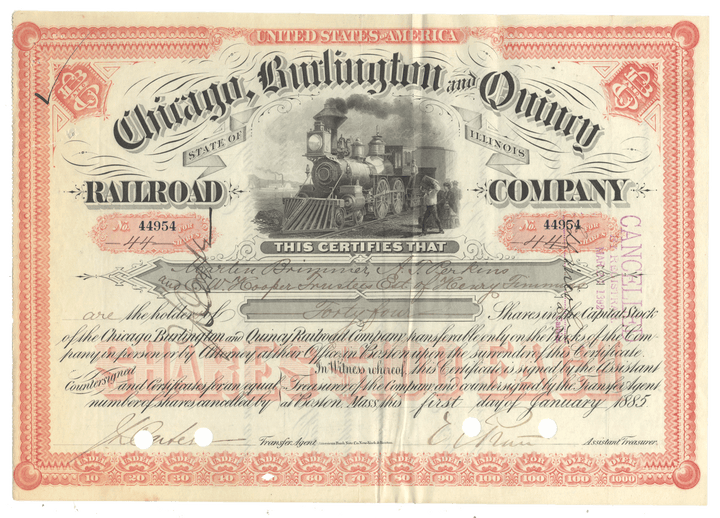 UNITED STATES AMERICA
Chicago, Burlington and Quincy
STATE OF ILLINOIS
RAILROAD COMPANY
No. 44954
44
No. 44954
44
THIS CERTIFIES THAT
Martin Brimmer, A. T. Perkins
and W Hooper Trustees Est. of Henry Timmins
are the holders of Forty four Shares in the Capital Stock
of the Chicago, Burlington and Quincy Railroad Company, transferable only on the Books of the Com-
pany in person or by Attorney at their Office in Boston upon the surrender of this certificate
Countersigned and Certificates for an equal number of shares cancelled by
In Witness whereof, this Certificate is signed by the Assistant
Treasurer of the Company and countersigned by the Transfer Agent
at Boston, Mass. this first day of January 1885
Transfer Agent
Assistant Treasurer.
SHARES $100 EACH
CANCELLED
10 20 30 40 50 60 70 80 90 100 100 100 1000